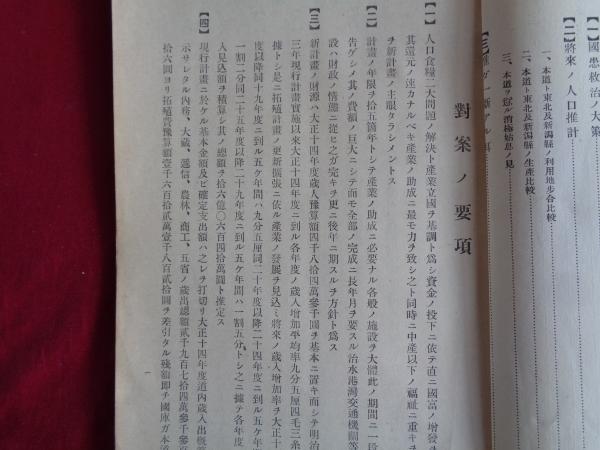 【一】國患救治ノ大策
【二】將來ノ人口推計
一、本道ト東北及新潟縣ノ利用地步合比較
二、本道ト東北及新潟縣ノ生產比較
三、本道ヲ
消極姑息ノ見
對案ノ要項
【一】人口食糧二大問題ノ解決ト產業立國ヲ基調ト爲シ資金ノ投下ニ依テ直ニ國富ノ增發ヲ
其還元ノ速カナルベキ產業ノ助成ニ最モ力ヲ致シ之ト同時ニ中產以下ノ福祉ニ重キヲ
ヲ新計畫ノ主眼タラシメントス
【二】計畫ノ年限ヲ拾五箇年トシテ產業ノ助成ニ必要ナル各般ノ施設ヲ大體此ノ期間ニ一段
告ゲシメ其ノ費額ノ巨大ニシテ而モ全部ノ完成ニ長年月ヲ要スル治水港灣交通機關等
設ハ財政ノ情態ニ從ヒ之ガ完キヲ更ニ後年ニ期スルヲ方針ト爲ス
【三】新計畫ノ財源ハ大正十四年度歲入豫算額四千八拾四萬參千圓ヲ基本ニ置キ而シテ明治
三年現行計畫實施以來大正十四年度ニ到ル各年度ノ歲入增加平均率九分五厘四毛三糸
據トシ是ニ拓殖計畫ノ更新擴張ニ依ル產業ノ發展ヲ見込ミ將來ノ歲入增加率ヲ大正十
度以降同十九年度ニ到ル五ケ年間ハ九分五厘同二十年度以降二十四年度ニ到ル五ケ年
一割二分同二十五年度以降二十九年度ニ到ル五ケ年間ハ一割五分トシ之ニ據テ各年度
入見込額ヲ積算シ其ノ總額ヲ拾六億〇六百四拾萬圓ト推定ス
【四】現行計畫ニ於ケル基本金額及ビ確定支出額ハ之レヲ打切リ大正十四年度道內歲入出槪
示サレタル內務、大藏、遞信、農林、商工、五省ノ歲出總額貳千九百七拾四萬參千參
拾六圓ヨリ拓殖費豫算額壹千六百拾貳萬壹千八百貳拾圓ヲ差引タル殘額卽チ國庫ガ本道
一